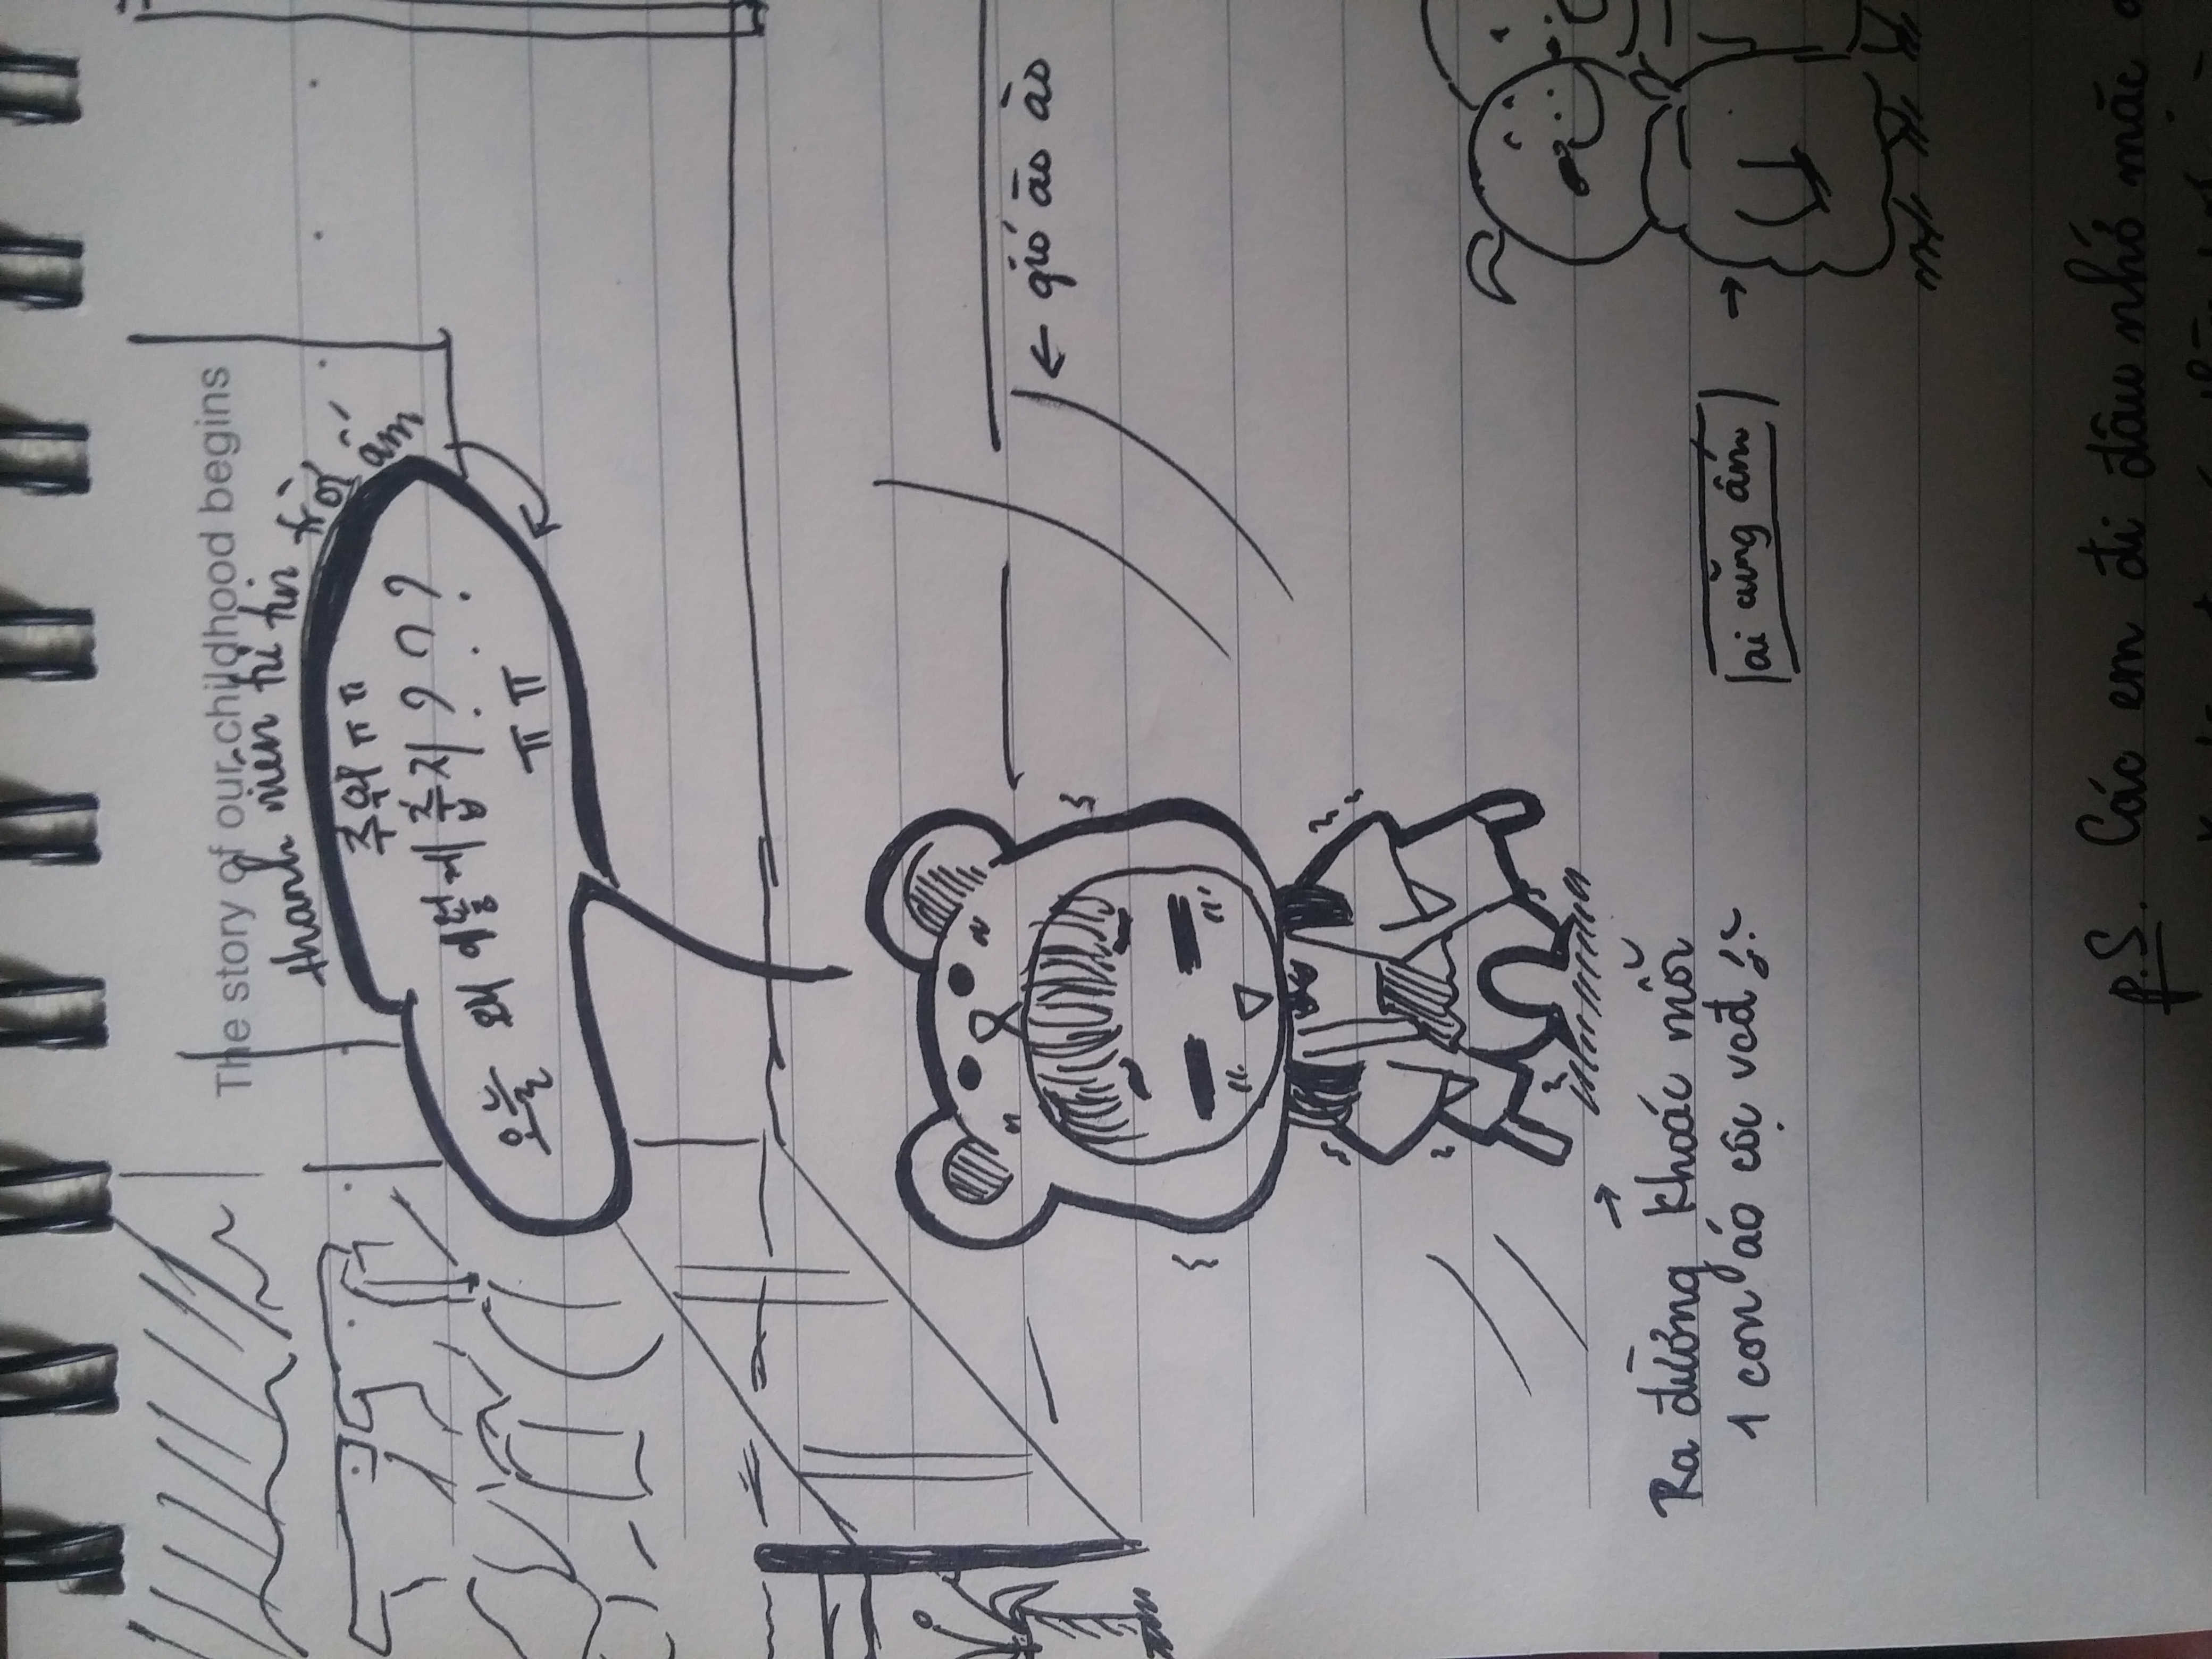 The story of our childhood begins
thanh niên tự tin trời ấm
추워 ㅠㅠ
오늘 왜 이렇게 춥지???
ㅠㅠ
← gió ào ào
→
Ra đường khoác mỗi
1 con áo cộc vcđ
ai cũng ấm →
P.S. Các em đi đâu nhớ mặc